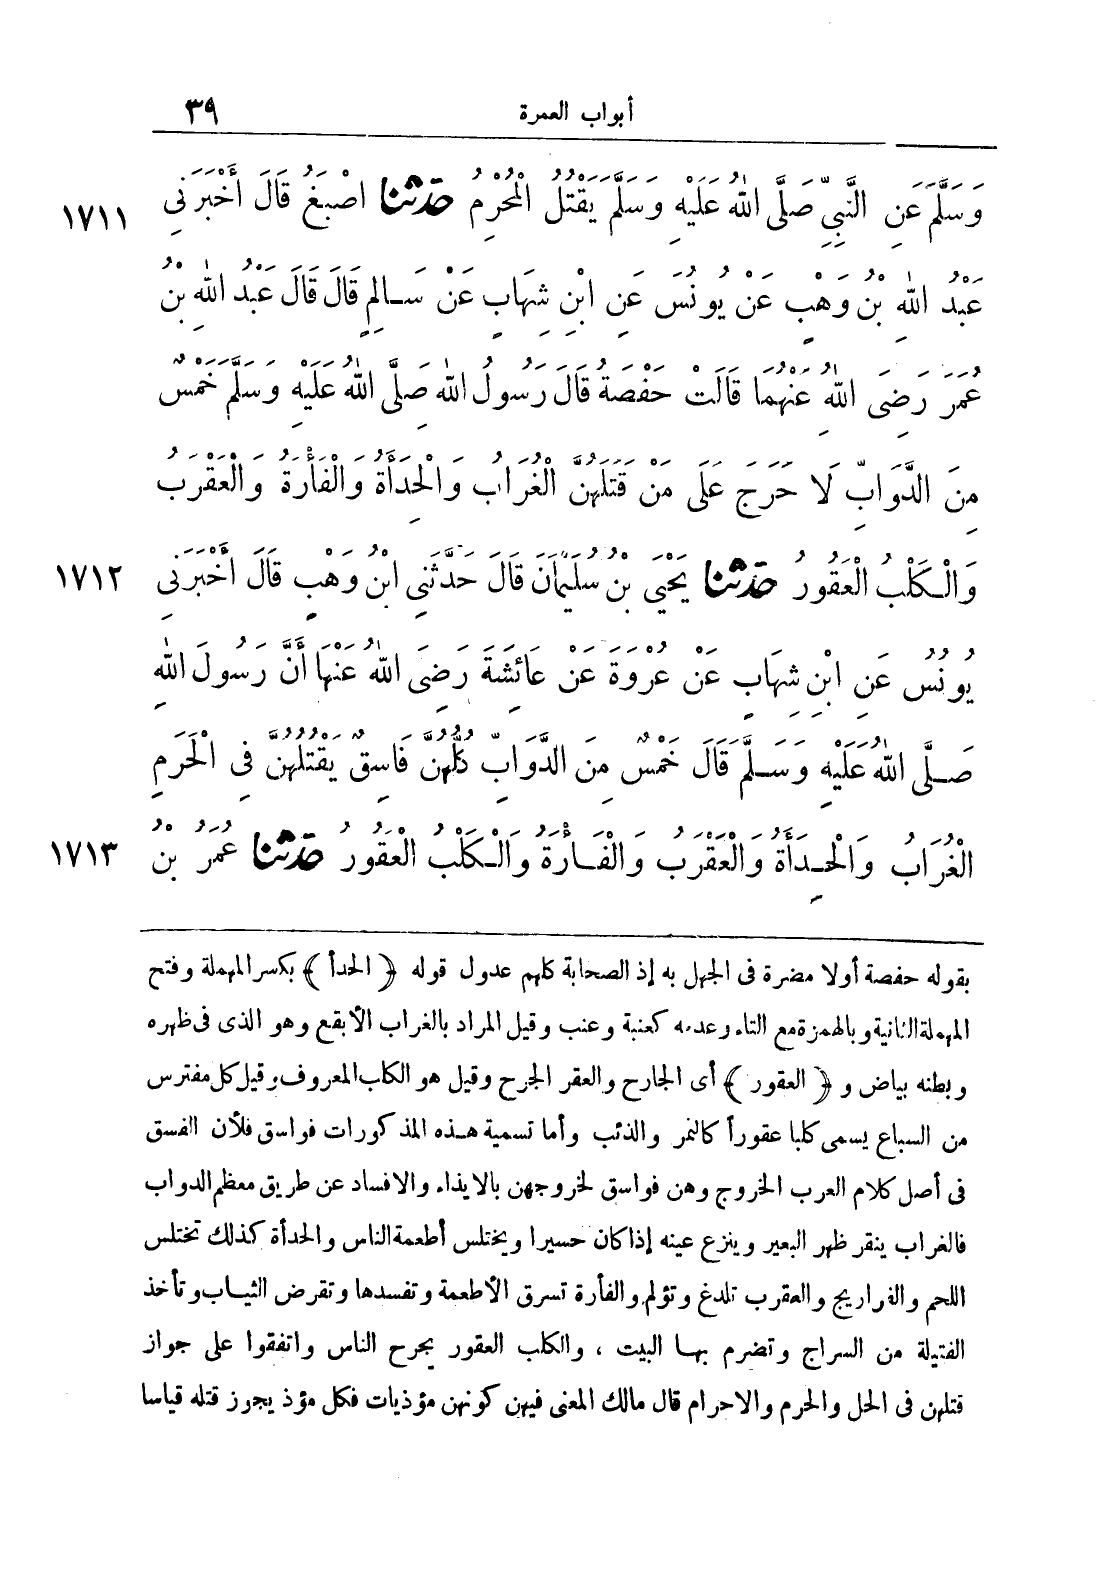 أبواب العمرة ٣٩
وَسَلَّمَ عَنِ النَّبِيِّ صَلَّى اللهُ عَلَيْهِ وَسَلَّمَ يَقْتُلُ الْمُحْرِمُ حَدَّثَنَا أَصْبَغُ قَالَ أَخْبَرَنِي ١٧١١
عَبْدُ اللهِ بْنُ وَهْبٍ عَنْ يُونُسَ عَنِ ابْنِ شِهَابٍ عَنْ سَالِمٍ قَالَ قَالَ عَبْدُ اللهِ بْنُ
عُمَرَ رَضِيَ اللهُ عَنْهُمَا قَالَتْ حَفْصَةُ قَالَ رَسُولُ اللهِ صَلَّى اللهُ عَلَيْهِ وَسَلَّمَ خَمْسٌ
مِنَ الدَّوَابِّ لَا حَرَجَ عَلَى مَنْ قَتَلَهُنَّ الْغُرَابُ وَالْحِدَأَةُ وَالْفَأْرَةُ وَالْعَقْرَبُ
وَالْكَلْبُ الْعَقُورُ حَدَّثَنَا يَحْيَى بْنُ سُلَيْمَانَ قَالَ حَدَّثَنِي ابْنُ وَهْبٍ قَالَ أَخْبَرَنِي ١٧١٢
يُونُسُ عَنِ ابْنِ شِهَابٍ عَنْ عُرْوَةَ عَنْ عَائِشَةَ رَضِيَ اللهُ عَنْهَا أَنَّ رَسُولَ اللهِ
صَلَّى اللهُ عَلَيْهِ وَسَلَّمَ قَالَ خَمْسٌ مِنَ الدَّوَابِّ كُلُّهُنَّ فَاسِقٌ يَقْتُلُهُنَّ فِي الْحَرَمِ
الْغُرَابُ وَالْحِدَأَةُ وَالْعَقْرَبُ وَالْفَأْرَةُ وَالْكَلْبُ الْعَقُورُ حَدَّثَنَا عُمَرُ بْنُ ١٧١٣
بقوله حفصة أولا مضرة فى الجهل به إذ الصحابة كلهم عدول قوله ﴿الحدأ﴾ بكسر المهملة وفتح
المهملة الثانية وبالهمزة مع التاء وعدمه كعنبة وعنب وقيل المراد بالغراب الأبقع وهو الذى فى ظهره
وبطنه بياض و﴿العقور﴾ أى الجارح والعقر الجرح وقيل هو الكلب المعروف وقيل كل مفترس
من السباع يسمى كلبا عقوراً كالنمر والذئب وأما تسمية هذه المذكورات فواسق فلأن الفسق
فى أصل كلام العرب الخروج وهن فواسق لخروجهن بالايذاء والافساد عن طريق معظم الدواب
فالغراب ينقر ظهر البعير وينزع عينه إذا كان حسيرا ويختلس أطعمة الناس والحدأة كذلك تختلس
اللحم والفراريج والعقرب تلدغ وتؤلم والفأرة تسرق الأطعمة وتفسدها وتقرض الثياب وتأخذ
الفتيلة من السراج وتضرم بها البيت ، والكلب العقور يجرح الناس واتفقوا على جواز
قتلهن فى الحل والحرم والاحرام قال مالك المعنى فيهن كونهن مؤذيات فكل مؤذ يجوز قتله قياسا